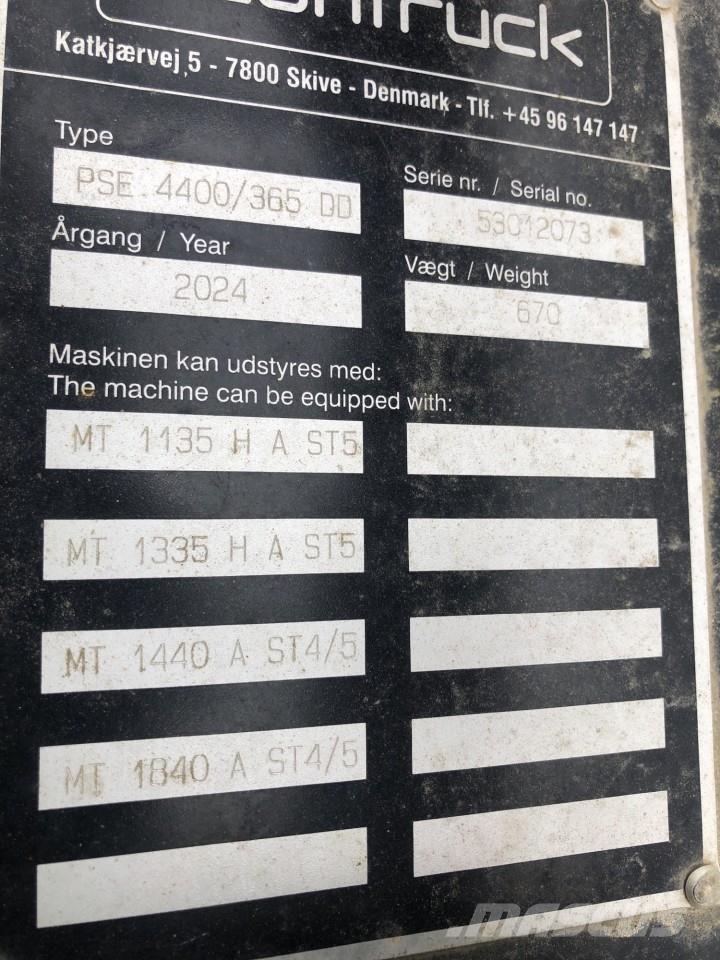 Katkjærvej 5 - 7800 Skive - Denmark - Tlf. +45 96 147 147
Type
PSE 4400/365 DD
Serie nr. / Serial no.
53012073
Årgang / Year
2024
Vægt / Weight
670
Maskinen kan udstyres med:
The machine can be equipped with:
MT 1135 H A ST5
MT 1335 H A ST5
MT 1440 A ST4/5
MT 1840 A ST4/5
MASCUS